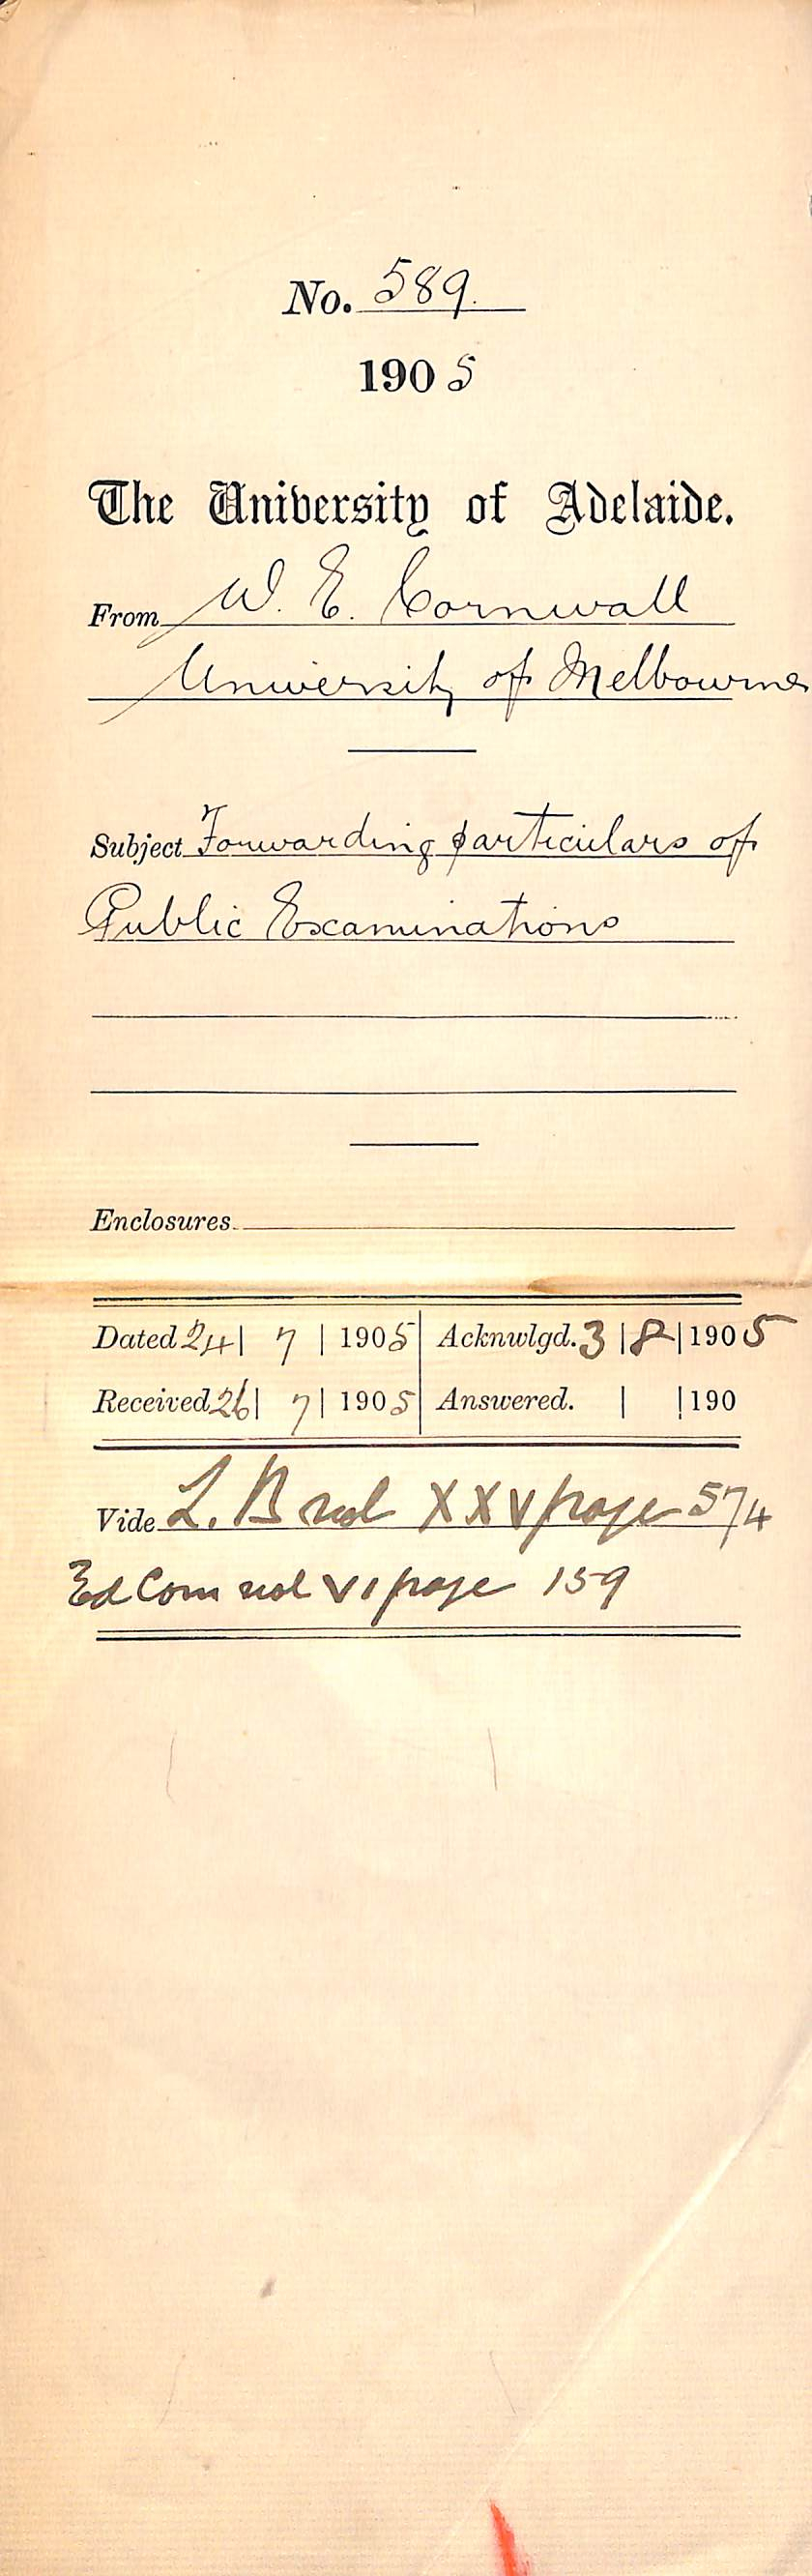 No. 589.
1905
The University of Adelaide.
From W. E. Cornwall
University of Melbourne
Subject Forwarding particulars of
Public Examinations
Enclosures
Dated 24 | 7 | 1905 | Acknwlgd. 3 | 8 | 1905
Received 26 | 7 | 1905 | Answered. | | 190
Vide L. B vol XXV page 574
Ed Com vol VI page 159